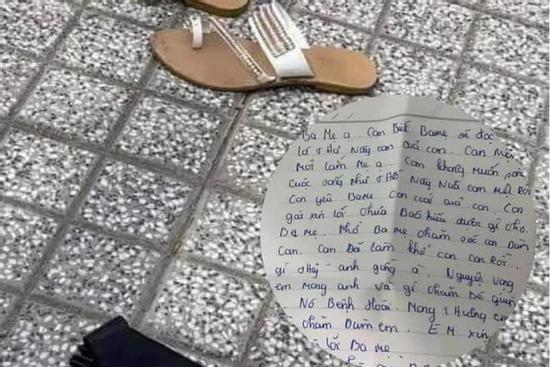 Ba Mẹ ạ. Con Biết Bame sẽ đọc
lá thư Này con của con. Con Mệt
Mỏi lắm Mẹ ạ. Con không muốn
cuộc sống Như thế Này Nữa con Mệt Rồi
Con yêu Bame Con của con. Con
gái xin lỗi chưa Báo hiếu được gì cho
Ba mẹ. Nhờ Ba mẹ chăm sóc con Dùm
Con. Con Bé lắm khổ con con Rồi.
gì Thủy anh ạ. Nguyện Vọng
em Mong anh Và gì chăm Bé giùm
Nó Bệnh Hoài. Mong Thương em
chăm Dùm em. EM xin
lỗi Ba mẹ